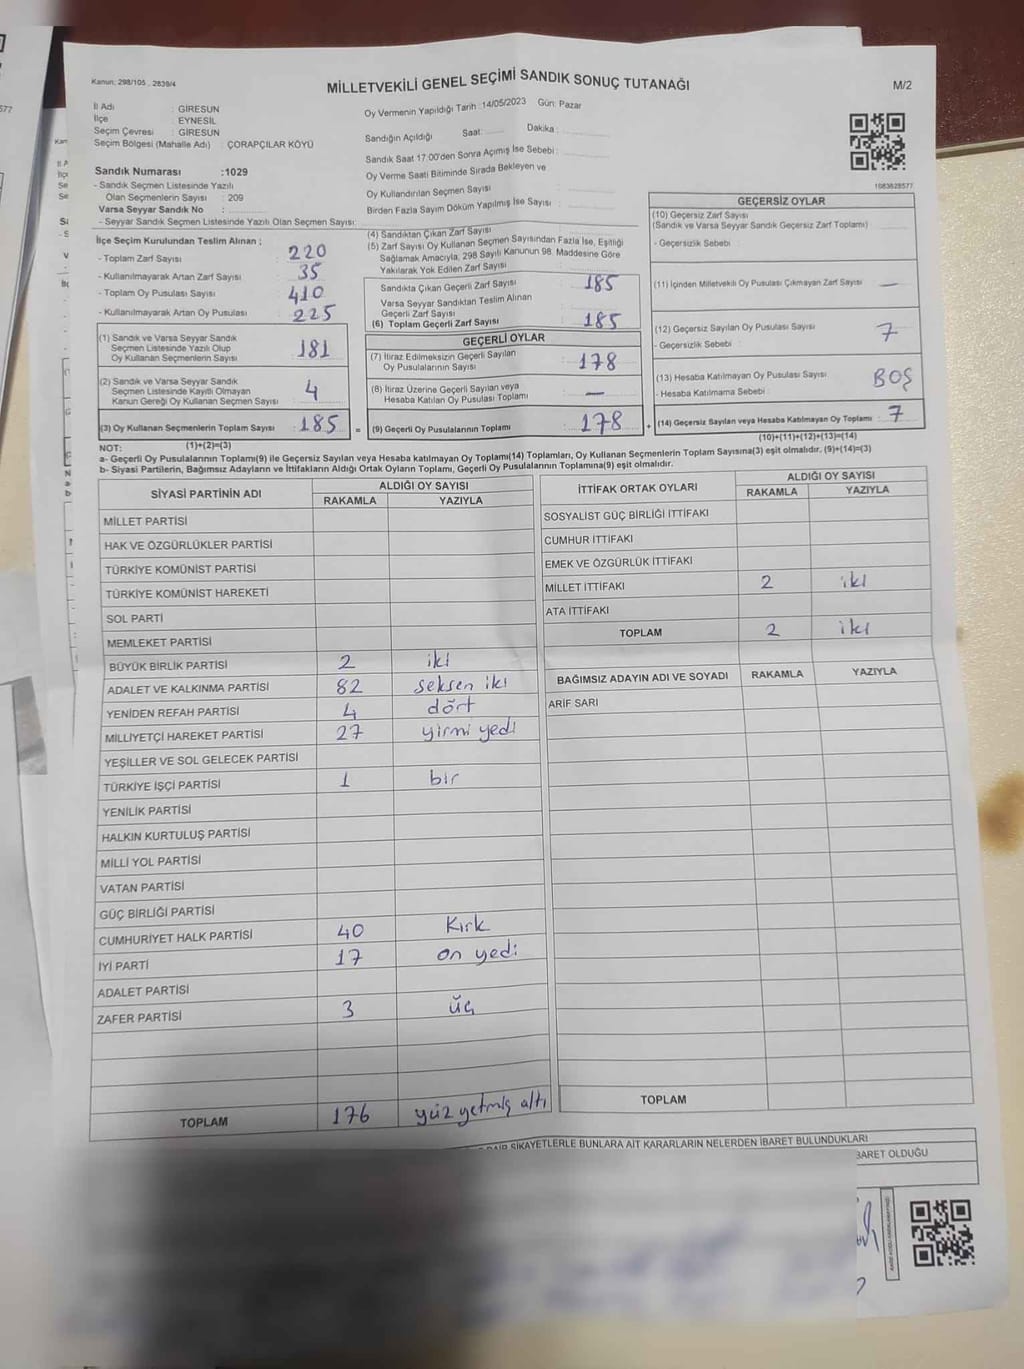 Kanun; 298/105 , 2839/4
MİLLETVEKİLİ GENEL SEÇİMİ SANDIK SONUÇ TUTANAĞI
M/2
İl Adı : GİRESUN
İlçe : EYNESİL
Seçim Çevresi : GİRESUN
Seçim Bölgesi (Mahalle Adı) : ÇORAPÇILAR KÖYÜ
Oy Vermenin Yapıldığı Tarih :14/05/2023 Gün: Pazar
Sandığın Açıldığı Saat: Dakika :
Sandık Saat 17:00'den Sonra Açımış İse Sebebi :
Oy Verme Saati Bitiminde Sırada Bekleyen ve
Oy Kullandırılan Seçmen Sayısı
Birden Fazla Sayım Döküm Yapılmış İse Sayısı :
1083628577
Sandık Numarası :1029
- Sandık Seçmen Listesinde Yazılı
Olan Seçmenlerin Sayısı : 209
Varsa Seyyar Sandık No :
- Seyyar Sandık Seçmen Listesinde Yazılı Olan Seçmen Sayısı:
İlçe Seçim Kurulundan Teslim Alınan ;
- Toplam Zarf Sayısı : 220
- Kullanılmayarak Artan Zarf Sayısı : 35
- Toplam Oy Pusulası Sayısı : 410
- Kullanılmayarak Artan Oy Pusulası : 225
(1) Sandık ve Varsa Seyyar Sandık
Seçmen Listesinde Yazılı Olup
Oy Kullanan Seçmenlerin Sayısı : 181
(2) Sandık ve Varsa Seyyar Sandık
Seçmen Listesinde Kayıtlı Olmayan
Kanun Gereği Oy Kullanan Seçmen Sayısı : 4
(3) Oy Kullanan Seçmenlerin Toplam Sayısı : 185 =
(1)+(2)=(3)
(4) Sandıktan Çıkan Zarf Sayısı :
(5) Zarf Sayısı Oy Kullanan Seçmen Sayısından Fazla İse, Eşitliği
Sağlamak Amacıyla, 298 Sayılı Kanunun 98. Maddesine Göre
Yakılarak Yok Edilen Zarf Sayısı
Sandıkta Çıkan Geçerli Zarf Sayısı : 185
Varsa Seyyar Sandıktan Teslim Alınan
Geçerli Zarf Sayısı
(6) Toplam Geçerli Zarf Sayısı : 185
GEÇERLİ OYLAR
(7) İtiraz Edilmeksizin Geçerli Sayılan
Oy Pusulalarının Sayısı : 178
(8) İtiraz Üzerine Geçerli Sayılan veya
Hesaba Katılan Oy Pusulası Toplamı : —
(9) Geçerli Oy Pusulalarının Toplamı : 178 +
GEÇERSİZ OYLAR
(10) Geçersiz Zarf Sayısı
(Sandık ve Varsa Seyyar Sandık Geçersiz Zarf Toplamı) :
- Geçersizlik Sebebi :
(11) İçinden Milletvekili Oy Pusulası Çıkmayan Zarf Sayısı : —
(12) Geçersiz Sayılan Oy Pusulası Sayısı : 7
- Geçersizlik Sebebi :
(13) Hesaba Katılmayan Oy Pusulası Sayısı : BOŞ
- Hesaba Katılmama Sebebi :
(14) Geçersiz Sayılan veya Hesaba Katılmayan Oy Toplamı : 7
(10)+(11)+(12)+(13)=(14)
NOT:
a- Geçerli Oy Pusulalarının Toplamı(9) ile Geçersiz Sayılan veya Hesaba katılmayan Oy Toplamı(14) Toplamları, Oy Kullanan Seçmenlerin Toplam Sayısına(3) eşit olmalıdır. (9)+(14)=(3)
b- Siyasi Partilerin, Bağımsız Adayların ve İttifakların Aldığı Ortak Oyların Toplamı, Geçerli Oy Pusulalarının Toplamına(9) eşit olmalıdır.
SİYASİ PARTİNİN ADI
ALDIĞI OY SAYISI
RAKAMLA YAZIYLA
MİLLET PARTİSİ
HAK VE ÖZGÜRLÜKLER PARTİSİ
TÜRKİYE KOMÜNİST PARTİSİ
TÜRKİYE KOMÜNİST HAREKETİ
SOL PARTİ
MEMLEKET PARTİSİ
BÜYÜK BİRLİK PARTİSİ 2 iki
ADALET VE KALKINMA PARTİSİ 82 seksen iki
YENİDEN REFAH PARTİSİ 4 dört
MİLLİYETÇİ HAREKET PARTİSİ 27 yirmi yedi
YEŞİLLER VE SOL GELECEK PARTİSİ
TÜRKİYE İŞÇİ PARTİSİ 1 bir
YENİLİK PARTİSİ
HALKIN KURTULUŞ PARTİSİ
MİLLİ YOL PARTİSİ
VATAN PARTİSİ
GÜÇ BİRLİĞİ PARTİSİ
CUMHURİYET HALK PARTİSİ 40 Kırk
İYİ PARTİ 17 on yedi
ADALET PARTİSİ
ZAFER PARTİSİ 3 üç
TOPLAM 176 yüz yetmiş altı
İTTİFAK ORTAK OYLARI
ALDIĞI OY SAYISI
RAKAMLA YAZIYLA
SOSYALİST GÜÇ BİRLİĞİ İTTİFAKI
CUMHUR İTTİFAKI
EMEK VE ÖZGÜRLÜK İTTİFAKI
MİLLET İTTİFAKI 2 iki
ATA İTTİFAKI
TOPLAM 2 iki
BAĞIMSIZ ADAYIN ADI VE SOYADI RAKAMLA YAZIYLA
ARİF SARI
TOPLAM
ŞİKAYETLERLE BUNLARA AİT KARARLARIN NELERDEN İBARET BULUNDUKLARI
BARET OLDUĞU